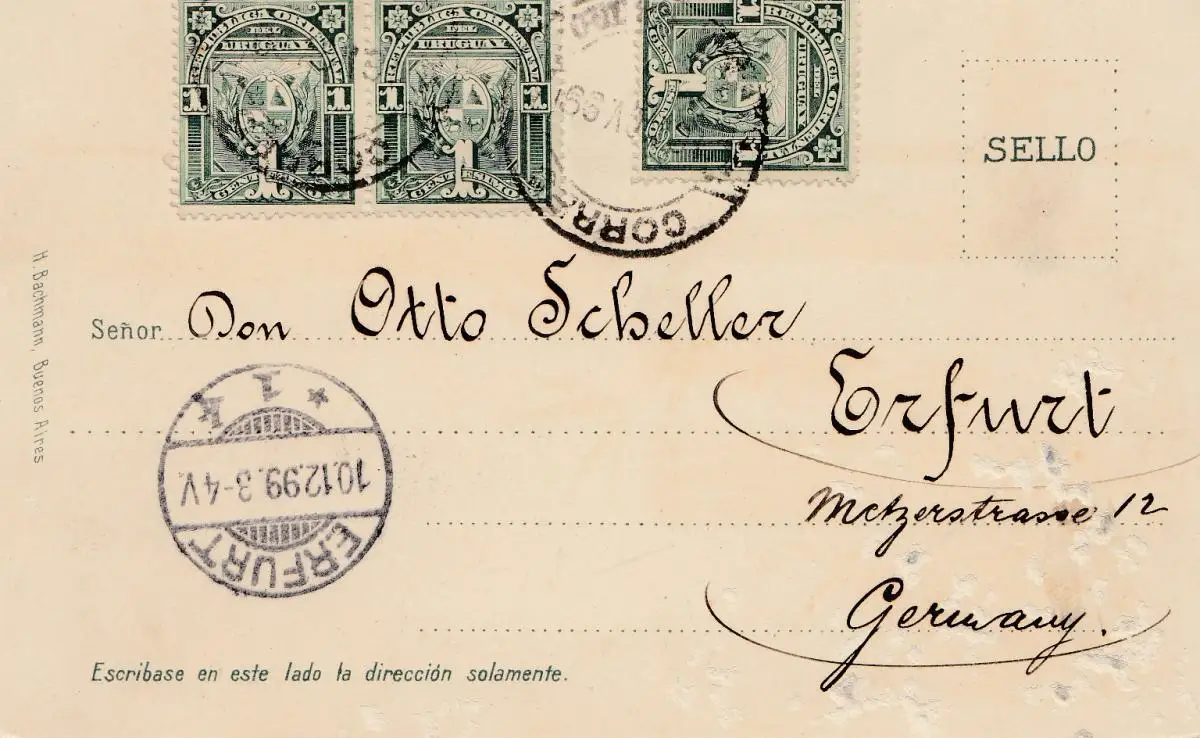 REPUBLICA ORIENTAL
DEL
URUGUAY
1 1
1
CENTESIMO
REPUBLICA ORIENTAL
DEL
URUGUAY
1 1
1
CENTESIMO
REPUBLICA ORIENTAL
DEL
URUGUAY
1 1
1
CENTESIMO
SELLO
H. Bachmann, Buenos Aires
Señor Don Otto Scheller
Erfurt
Metzerstrasse 12
Germany.
ERFURT
10.12.99.3-4V.
* 1 k
Escribase en este lado la dirección solamente.